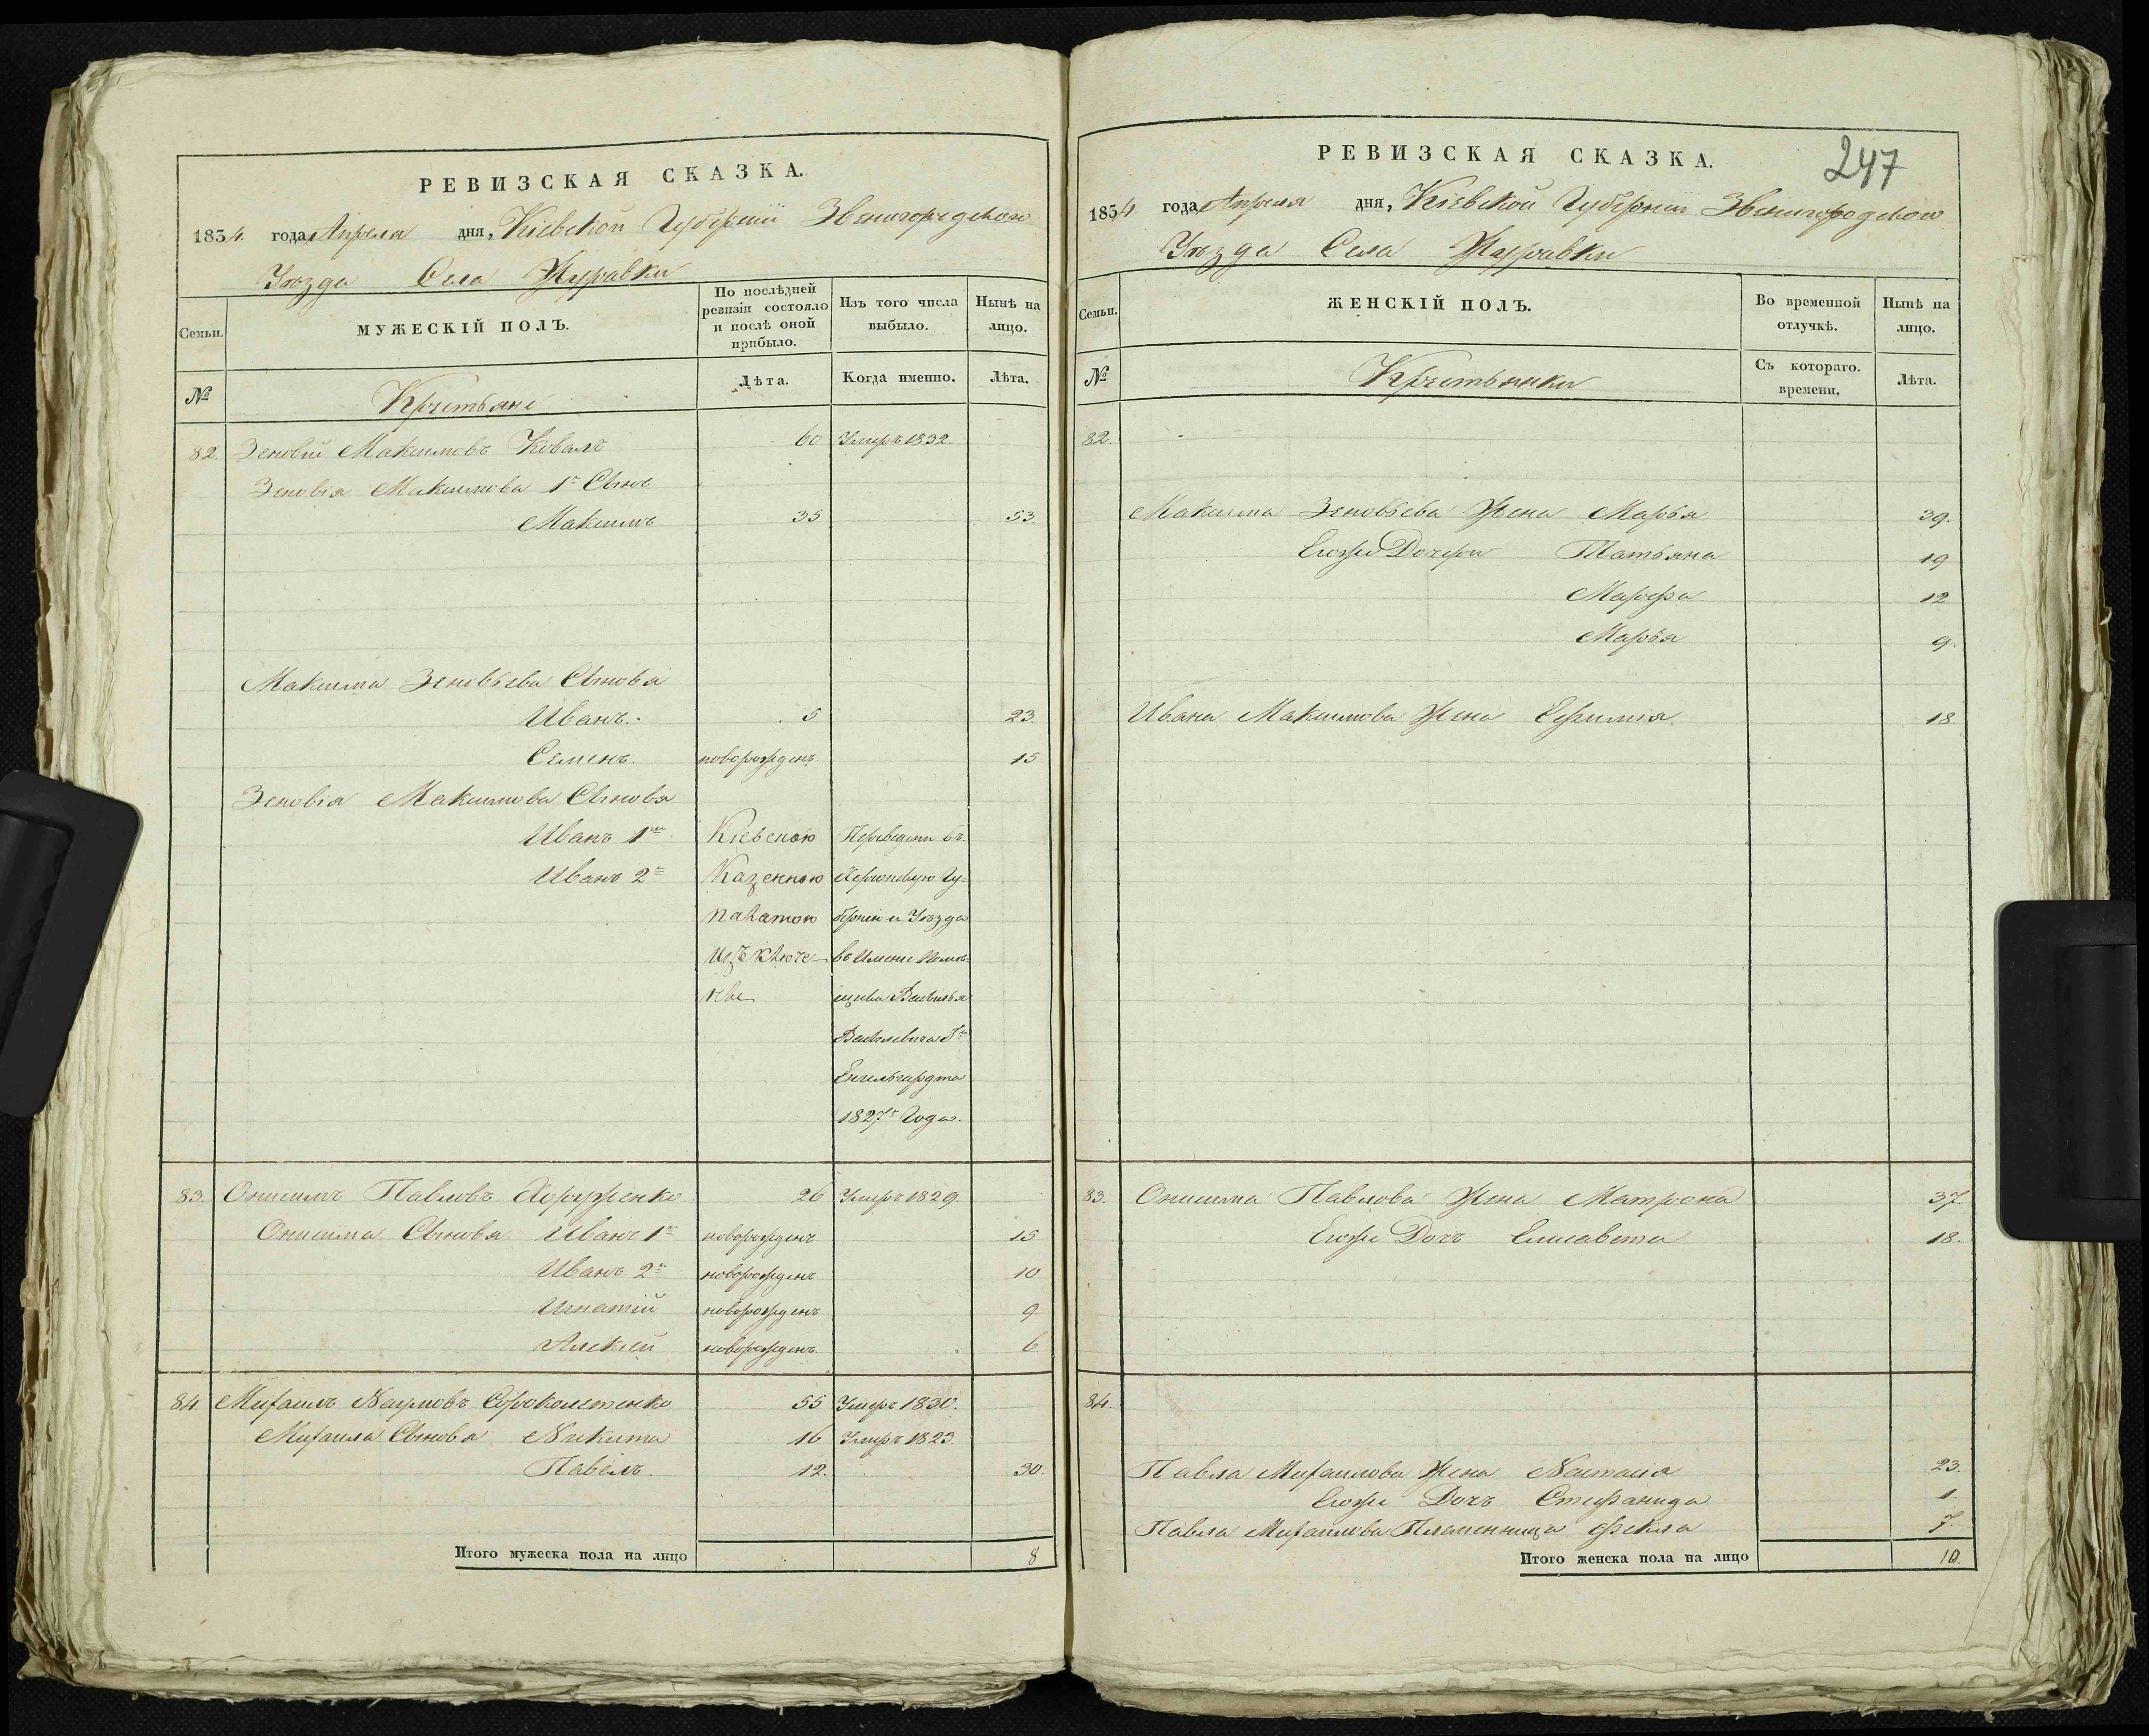 РЕВИЗСКАЯ СКАЗКА.
1834. года Апреля дня, Кіевской Губерніи Звенигородского
Уѣзда Села Журавки
Семьи.
МУЖЕСКІЙ ПОЛЪ.
По послѣдней ревизіи состояло и послѣ оной прибыло.
Изъ того числа выбыло.
Нынѣ на лицо.
№
Крестьяне
Лѣта.
Когда именно.
Лѣта.
82. Зеновій Максимовъ Коваль 60 Умеръ 1832.
Зеновія Максимова 1й Сынъ
Максимъ 35 53.
Максима Зеновьева Сыновя
Иванъ. 5 23.
Семенъ. новорожденъ 15
Зеновія Максимова Сыновя
Иванъ 1й Кіевскою Переведены въ
Иванъ 2й Казенною Херсонскую Гу-
палатою берніи и Уѣзда
изъключе- въ Имение Помѣ-
ны щика Василья
Васильевича
Енгельгардта
1827го Года.
83. Онисимъ Павловъ Хоруженко 26 Умеръ 1829.
Онисима Сыновя Иванъ 1й новорожденъ 15
Иванъ 2й новорожденъ 10
Игнатій новорожденъ 9
Алексей новорожденъ 6
84. Михаилъ Наумовъ Сороколетенко 55 Умеръ 1830.
Михаила Сыновя Никита 16 Умеръ 1823.
Павелъ. 12. 30.
Итого мужеска пола на лицо 8
РЕВИЗСКАЯ СКАЗКА.
247
1834. года Апреля дня, Кіевской Губерніи Звенигородского
Уѣзда Села Журавки
Семьи.
ЖЕНСКІЙ ПОЛЪ.
Во временной отлучкѣ.
Нынѣ на лицо.
№
Крестьянки
Съ котораго. времени.
Лѣта.
82.
Максима Зеновьева Жена Марья 39.
Егоже Дочери Татьяна 19
Марфа 12
Марья 9.
Ивана Максимова Жена Ефимія 18
83. Онисима Павлова Жена Матрона 37.
Егоже Дочь Елисавета 18.
84.
Павла Михаилова Жена Настасія 23.
Егоже Дочь Стефанида 1.
Павла Михаилова Племенница Фекла 7.
Итого женска пола на лицо 10.